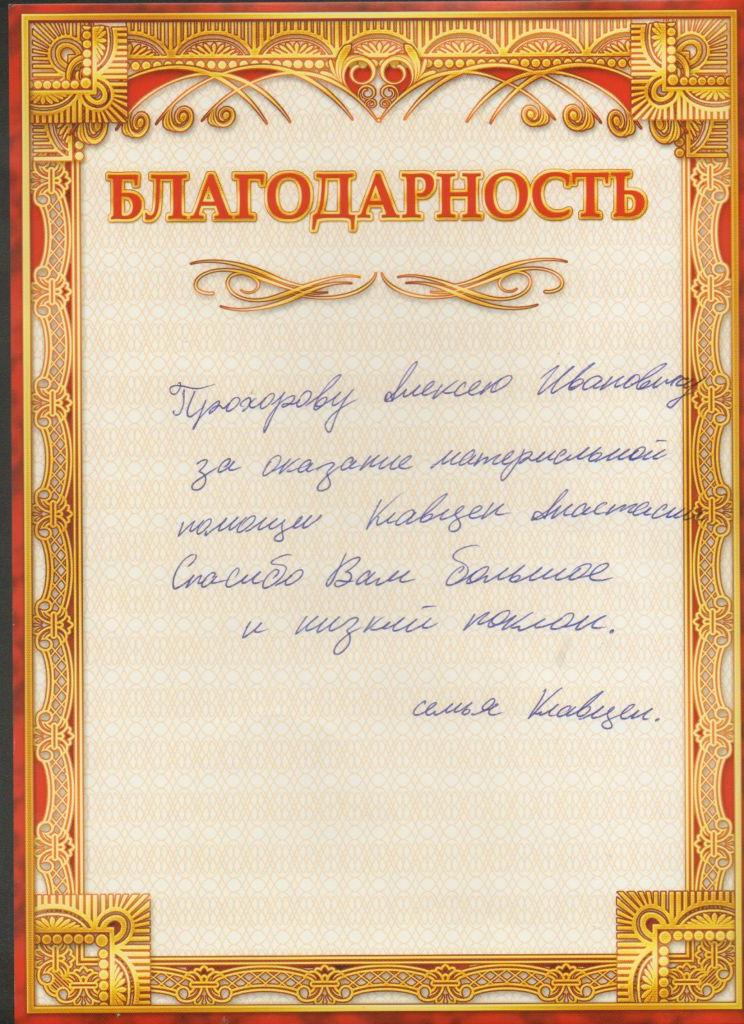 БЛАГОДАРНОСТЬ
Прохорову Алексею Ивановичу
за оказание материальной
помощи Клавцен Анастасии
Спасибо Вам большое
и низкий поклон.
семья Клавцен.